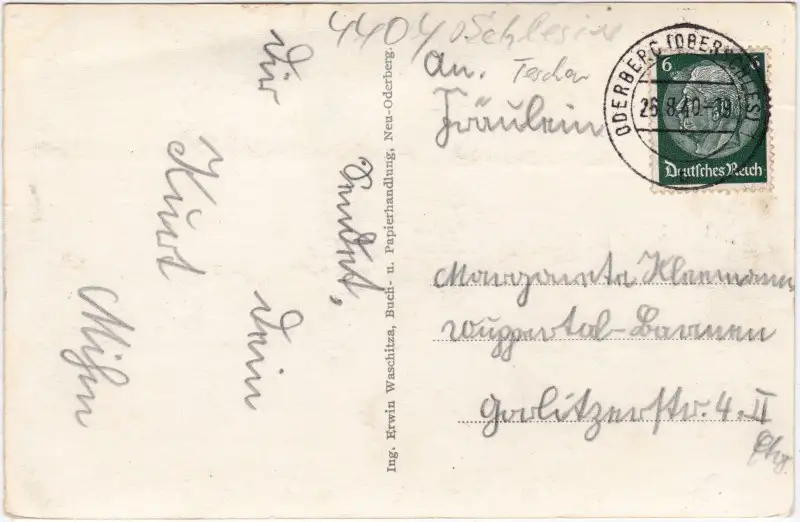 4404 Schlesien
Teschen
An.
Fräulein
Margarete Kleemann
Wuppertal-Barmen
Görlitzerstr. 4. II
ODERBERG (OBERSCHLES)
26.8.40-19
6 6
Deutsches Reich
Ing. Erwin Waschitza, Buch- u. Papierhandlung, Neu-Oderberg.
Dir
sendet,
Dein
Kurt